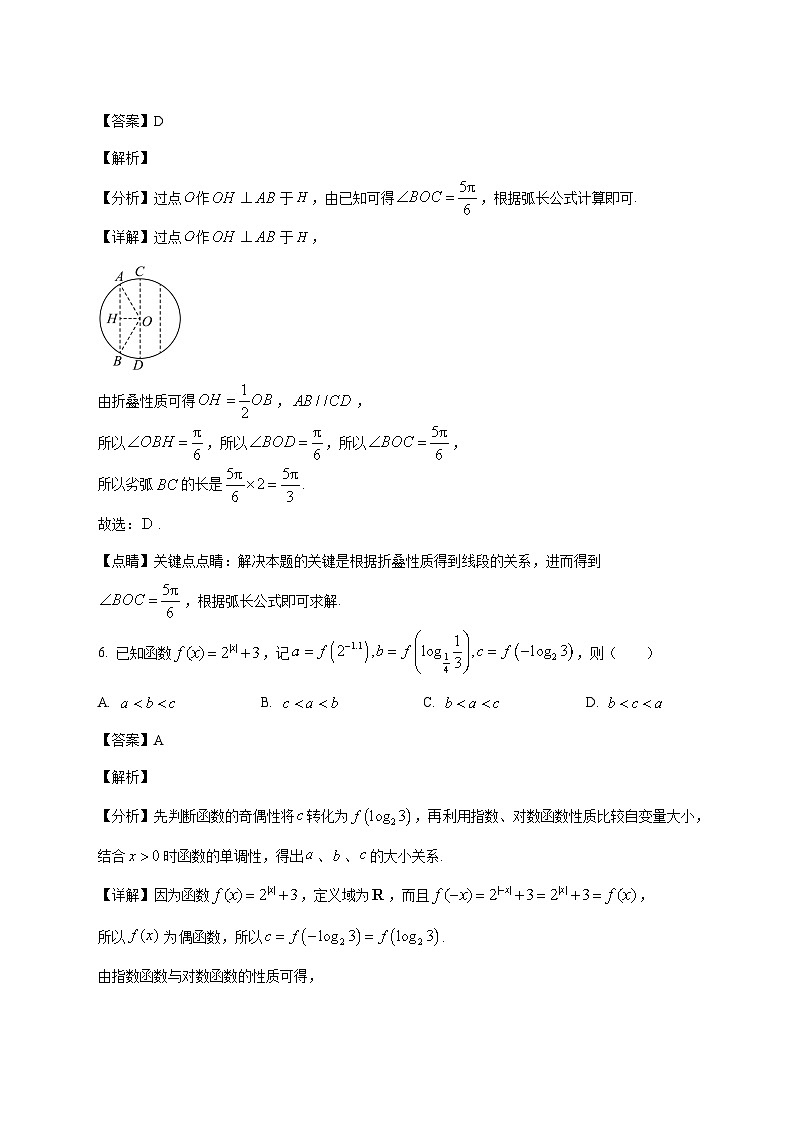 【答案】D
【解析】
【分析】过点O作OH ⊥ AB于H，由已知可得∠BOC = 5π/6，根据弧长公式计算即可.
【详解】过点O作OH ⊥ AB于H，
A C
H O
B D
由折叠性质可得OH = 1/2 OB，AB//CD，
所以∠OBH = π/6，所以∠BOD = π/6，所以∠BOC = 5π/6，
所以劣弧BC的长是5π/6 × 2 = 5π/3.
故选：D．
【点睛】关键点点睛：解决本题的关键是根据折叠性质得到线段的关系，进而得到
∠BOC = 5π/6，根据弧长公式即可求解.
6. 已知函数f(x) = 2^|x| + 3，记a = f(2^−1.1), b = f(log_{1/4} 1/3), c = f(−log₂3)，则（　　）
A. a < b < c B. c < a < b C. b < a < c D. b < c < a
【答案】A
【解析】
【分析】先判断函数的奇偶性将c转化为f(log₂3)，再利用指数、对数函数性质比较自变量大小，
结合x > 0时函数的单调性，得出a、b、c的大小关系.
【详解】因为函数f(x) = 2^|x| + 3，定义域为R，而且f(−x) = 2^|−x| + 3 = 2^|x| + 3 = f(x)，
所以f(x)为偶函数，所以c = f(−log₂3) = f(log₂3).
由指数函数与对数函数的性质可得，